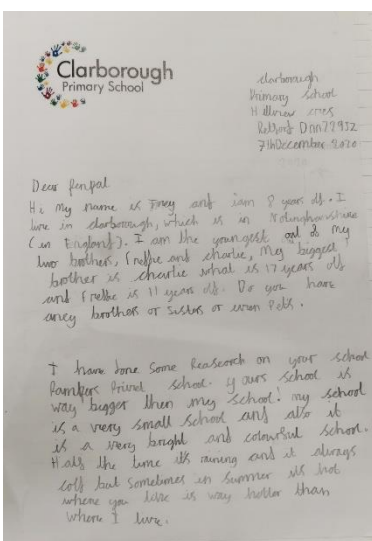 Clarborough
Primary School
clarborough
Primary School
Hillview cres
7thDecember 2020
Dear penpal
Hi my name is and iam 8 years old. I
live in clarborough, which is in
(in England). I am the youngest out of my
two brothers, and charlie, My biggest
brother is charlie what is 17 years old
and is 11 years old. Do you have
aney brothers or sisters or even Pets.
I have done some Reaserch on your school
school. yours school is
way bigger then my school! my school
is a very small school and also it
is a very bright and colourful school.
Half the time it's raining and it always
cold but sometimes in summer it's hot
where you live is way hotter than
where I live.